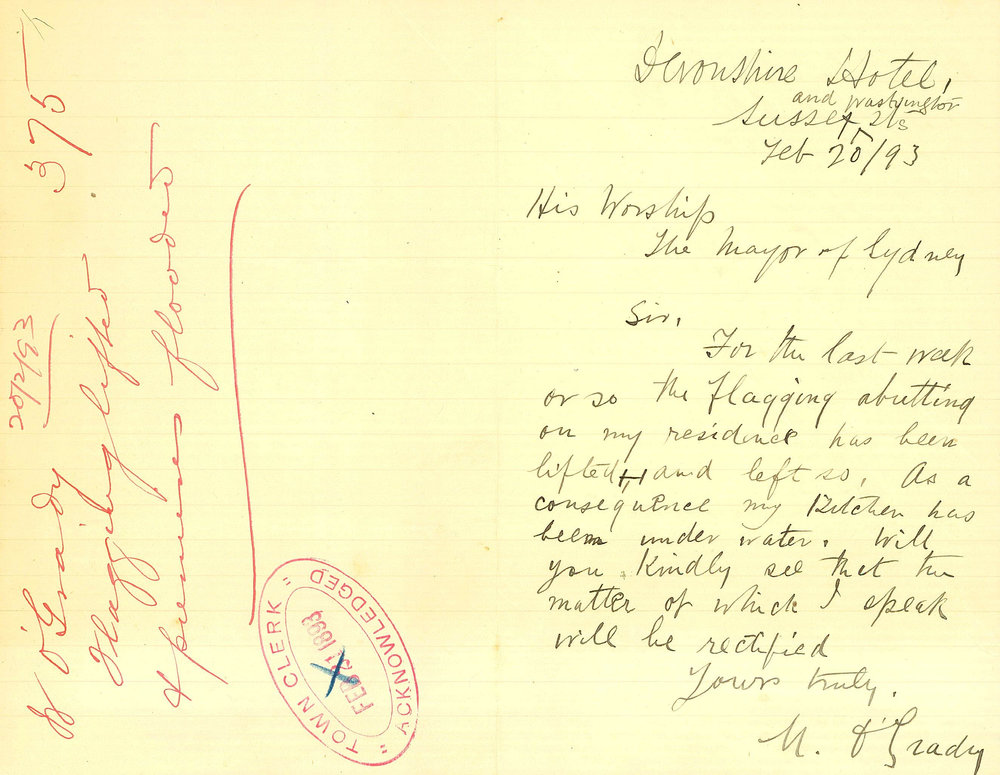 Devonshire Hotel,
and Washington
Sussex Sts
Feb 20/93
His Worship
The Mayor of Sydney
Sir.
For the last week
or so the flagging abutting
on my residence has been
lifted, and left so. As a
consequence my Kitchen has
been under water. Will
you kindly see that the
matter of which I speak
will be rectified
Yours truly.
M. O'Grady
375
20/2/93
O'Grady
Flagging lifted
& premises flooded
"TOWN CLERK"
FEB 21 1893
ACKNOWLEDGED